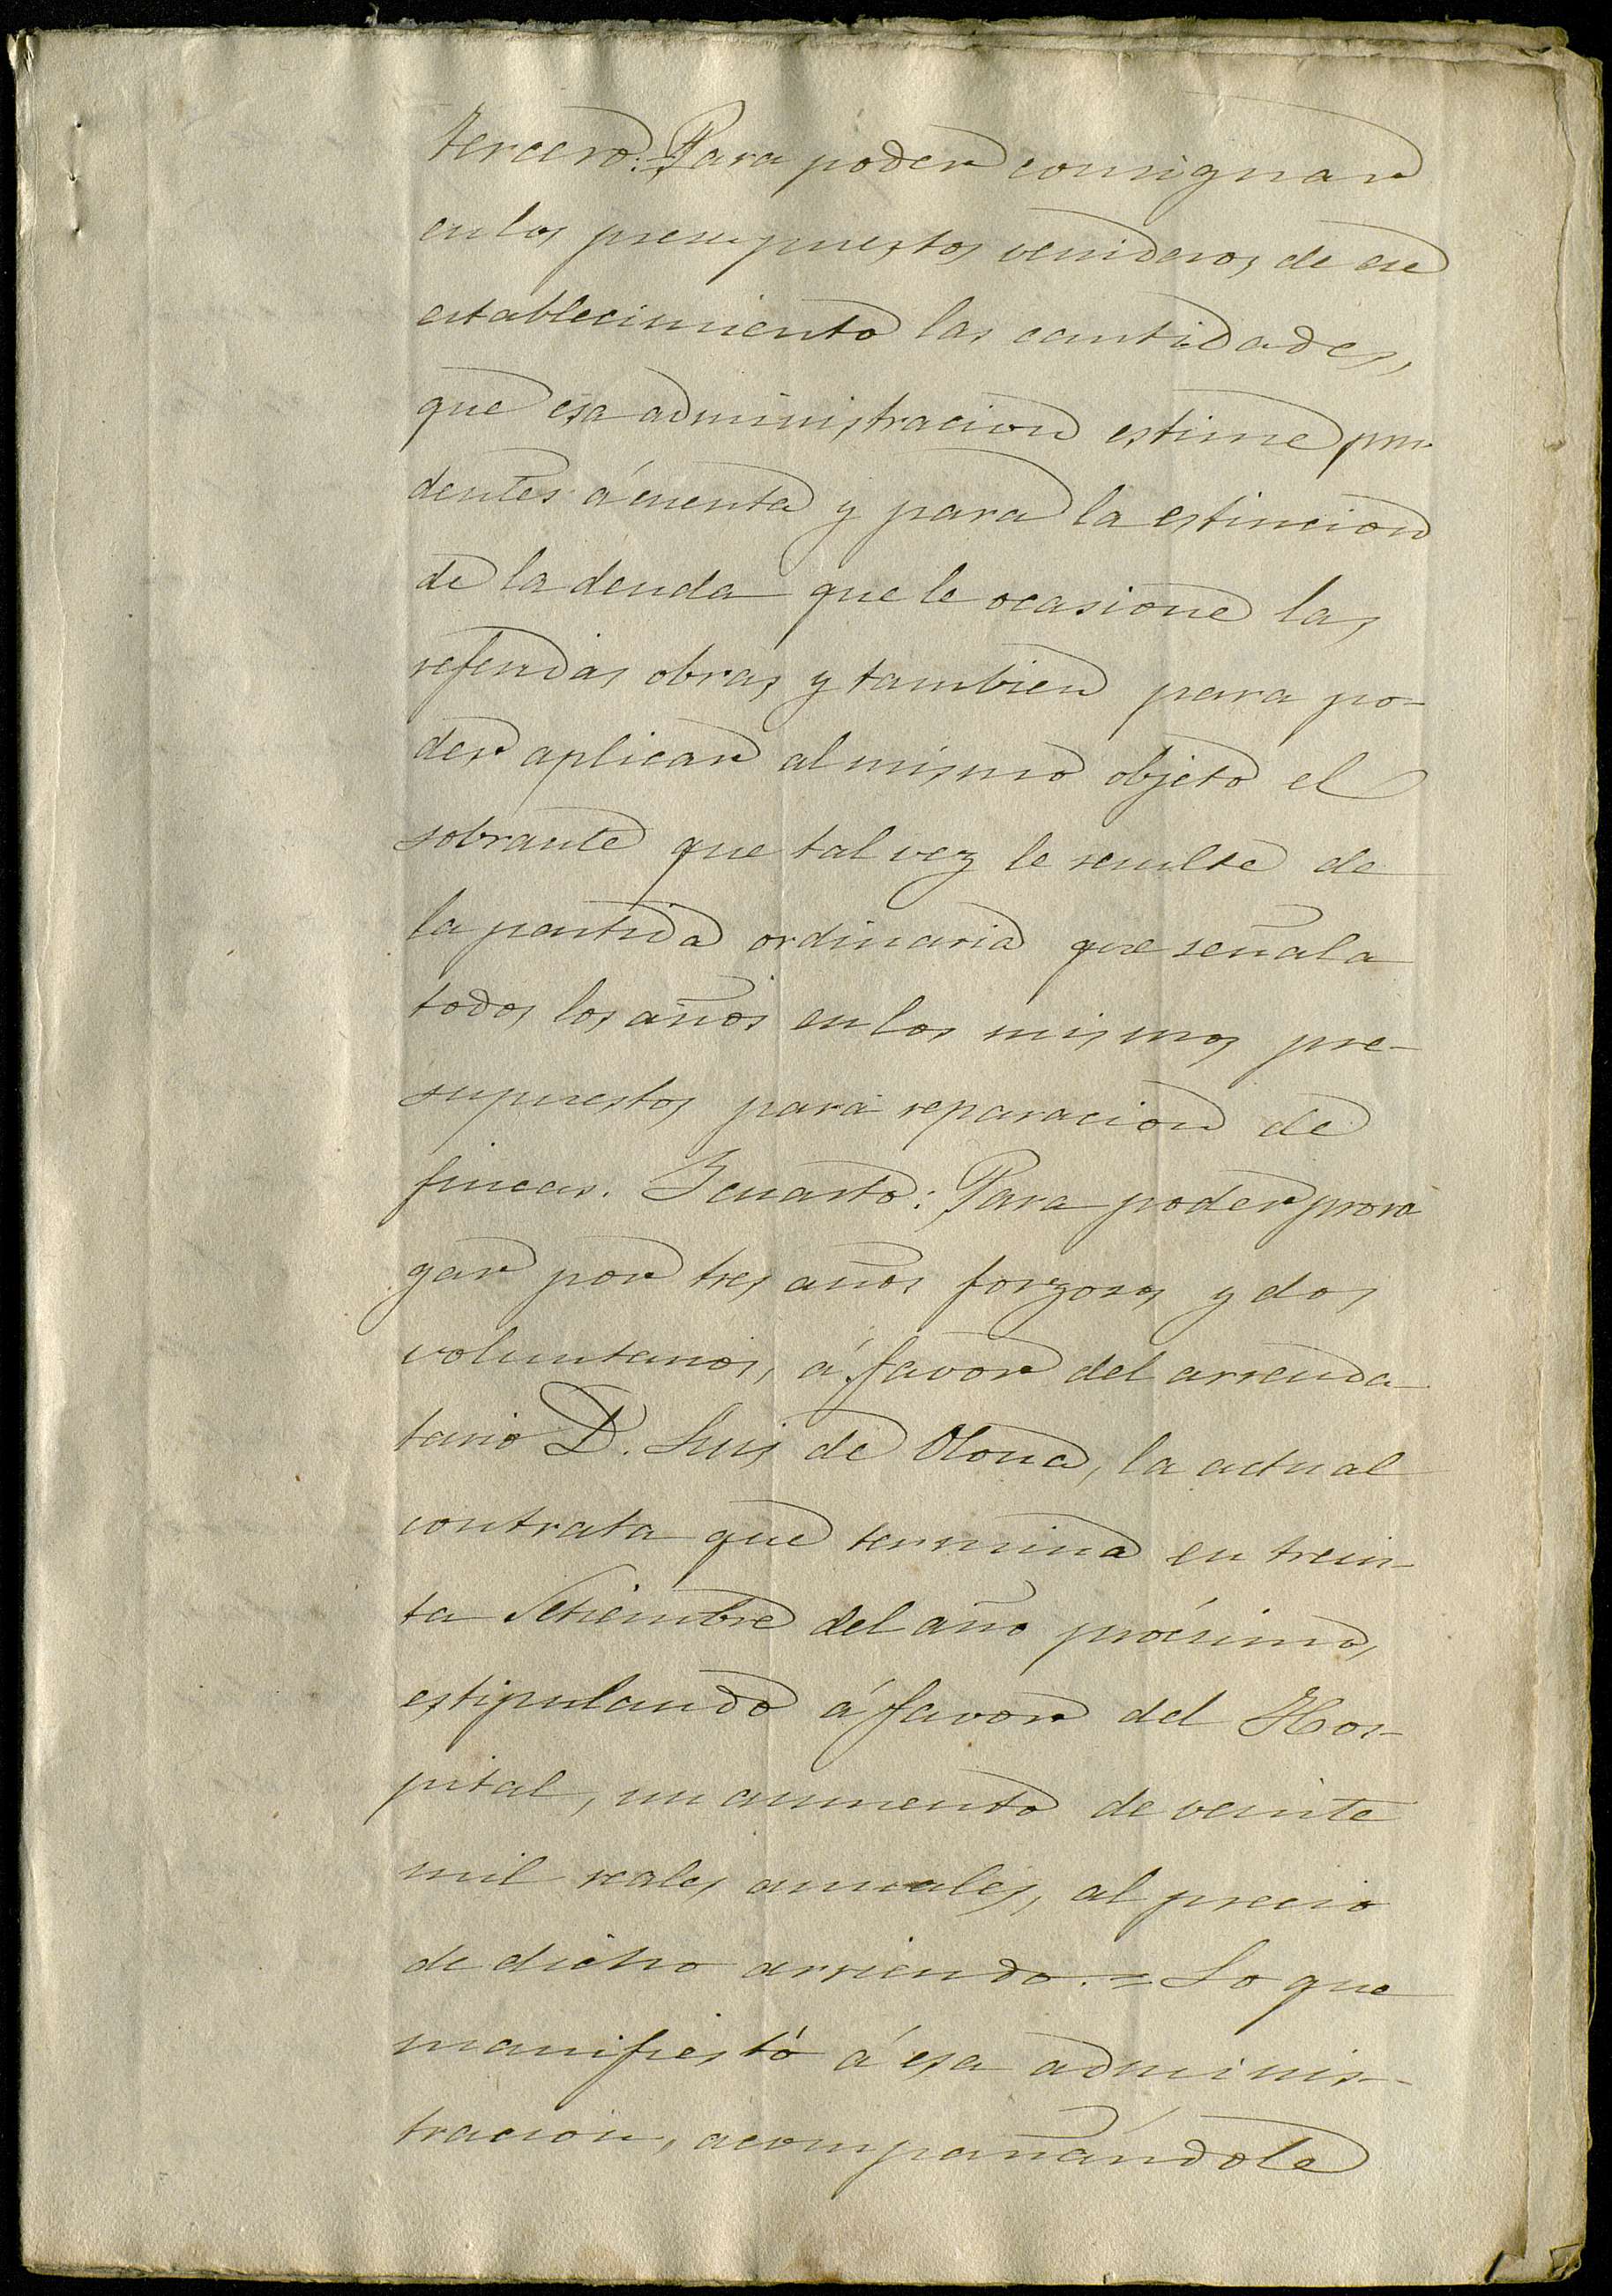 tercero: Para poder consignar
en los presupuestos venideros de ese
establecimiento las cantidades,
que esa administracion estime pru-
dentes á cuenta y para la estincion
de la deuda que le ocasione las
referidas obras y tambien para po-
der aplicar al mismo objeto el
sobrante que tal vez le resulte de
la partida ordinaria que señala
todos los años en los mismos pre-
supuestos para reparacion de
fincas. Y cuarto: Para poder proro
gar por tres años forzosos y dos
voluntarios, á favor del arrenda-
tario D. Luis de Olona, la actual
contrata que termina en trein-
ta Setiembre del año prócsimo,
estipulando á favor del Hos-
pital, un aumento de veinte
mil reales anuales, al precio
de dicho arriendo. = Lo que
manifiestó á esa adminis-
tracion, acompañándole